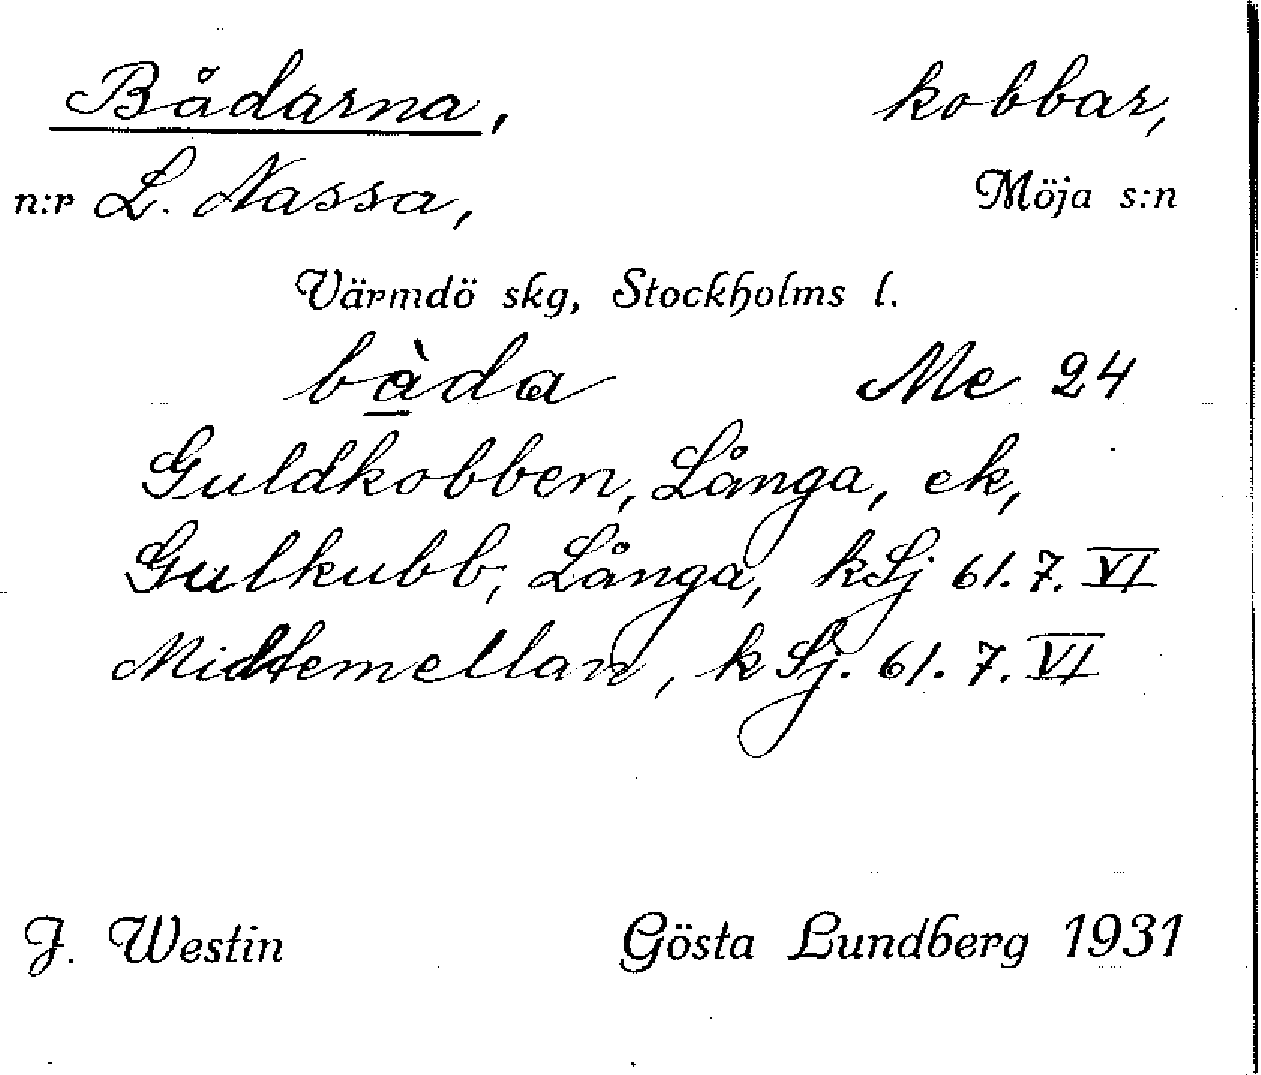 Bådarna, kobbar,
n:r L. Nassa, Möja s:n
Värmdö skg, Stockholms l.
bàda Me 24
Guldkobben, Långa, ek,
Gulkubb, Långa, kSj 61. 7. VI
Midtemellan, k Sj. 61. 7. VI
J. Westin Gösta Lundberg 1931